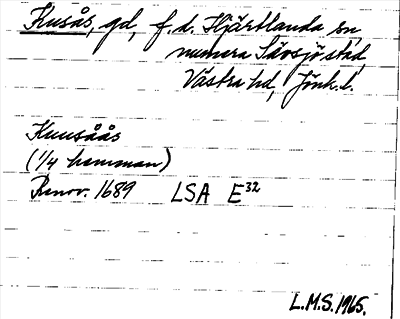 Husås, gd, f.d. Hjärtlanda sn,
numera Sävsjö stad,
Västra hd, Jönk.l.
Huusåås
(1/4 hemman)
Renov. 1689 LSA E32
L.M.S. 1965.